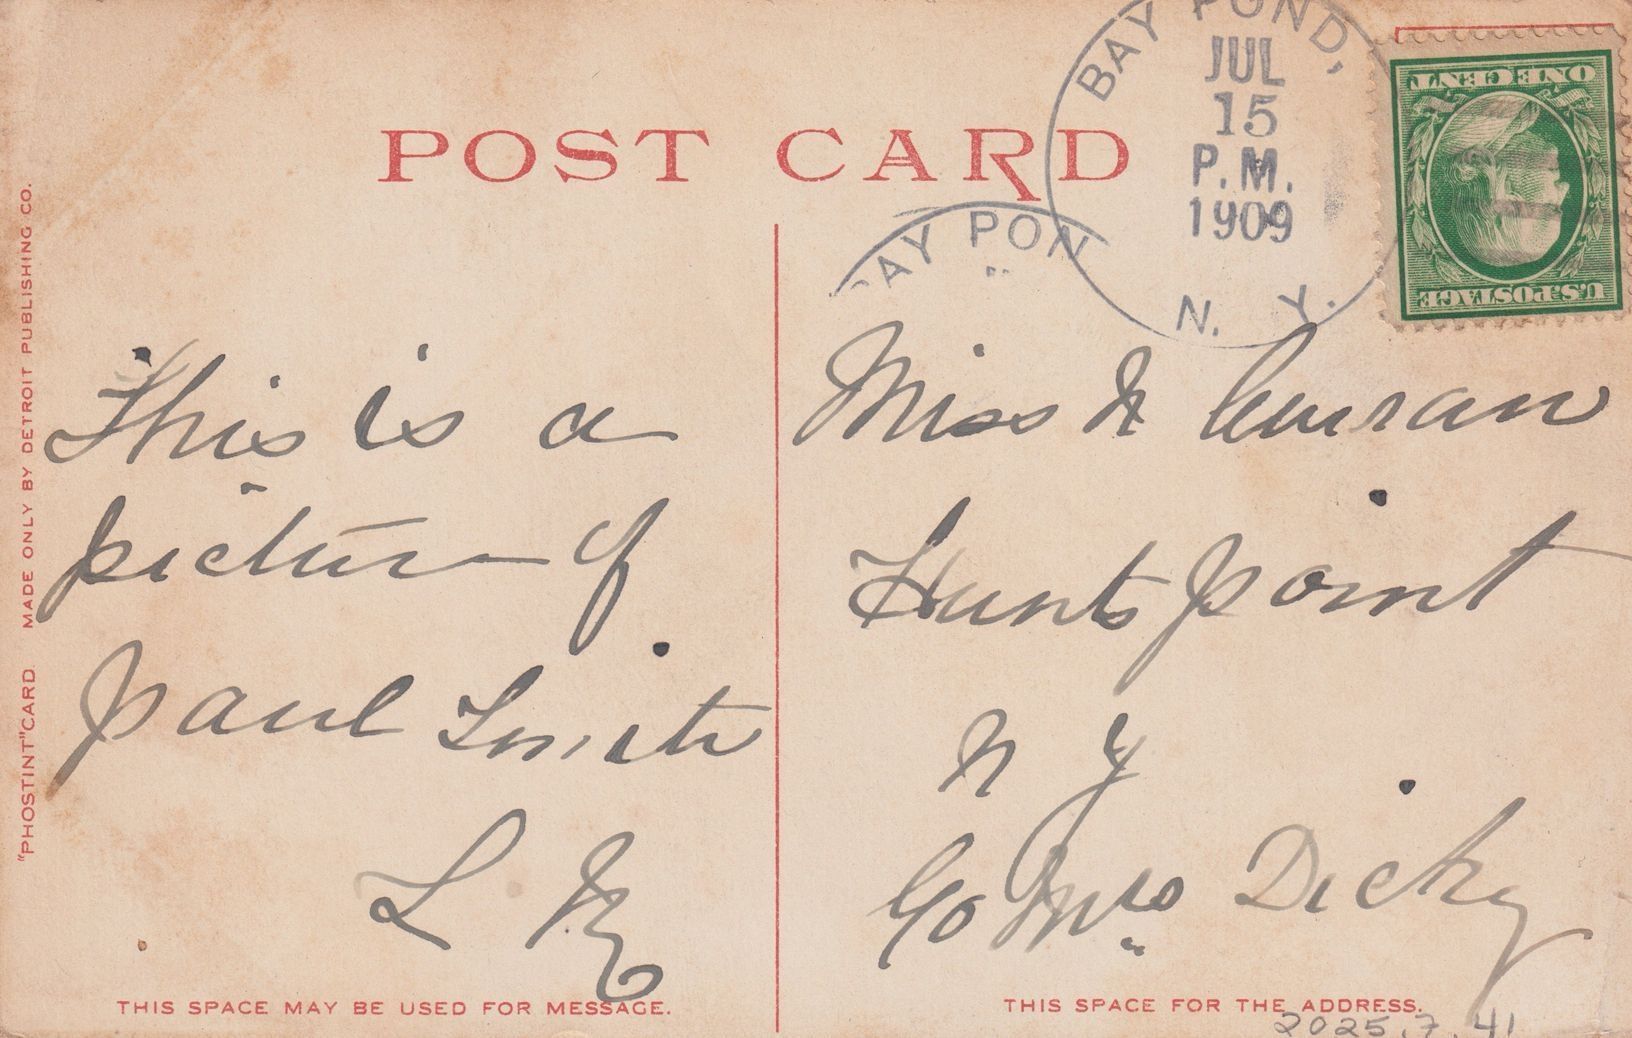 POST CARD
BAY POND,
JUL
15
P.M.
1909
N. Y.
BAY PON
ONE CENT
U.S. POSTAGE
"PHOSTINT" CARD MADE ONLY BY DETROIT PUBLISHING CO.
This is a
picture of
Paul Smith
L
Miss N Curran
Hunts Point
N Y
C/o Mrs Dicky
THIS SPACE MAY BE USED FOR MESSAGE.
THIS SPACE FOR THE ADDRESS.
2025.7.41